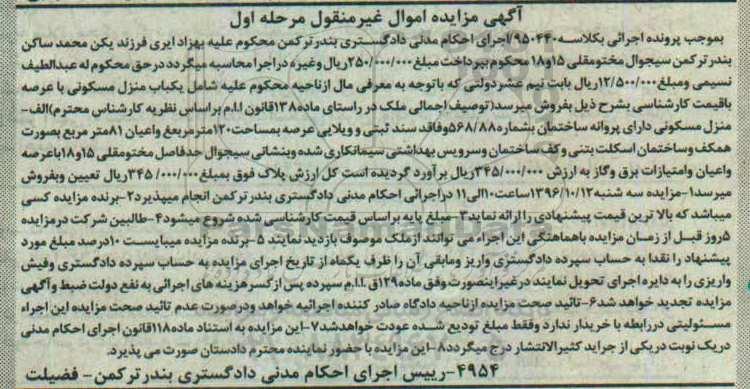 آگهی مزایده اموال غیرمنقول مرحله اول
بموجب پرونده اجرائی بکلاسه ۹۵۰۴۴۰/اجرای احکام مدنی دادگستری بندرترکمن محکوم علیه بهزاد ایری فرزند یکن محمد ساکن
بندرترکمن سیجوال مختومقلی ۱۵و۱۸ محکوم بپرداخت مبلغ ۲۵۰/۰۰۰/۰۰۰ریال وغیره دراجرا محاسبه میگردد درحق محکوم له عبداللطیف
نسیمی ومبلغ ۱۲/۵۰۰/۰۰۰ریال بابت نیم عشردولتی که باتوجه به معرفی مال ازناحیه محکوم علیه شامل یکباب منزل مسکونی با عرصه
باقیمت کارشناسی بشرح ذیل بفروش میرسد(توصیف اجمالی ملک در راستای ماده۱۳۸قانون ا.ا.م براساس نظریه کارشناس محترم)الف-
منزل مسکونی دارای پروانه ساختمان بشماره۵۶۸/۸۸وفاقد سند ثبتی و ویلایی عرصه بمساحت۱۲۰مترمربعغ واعیان ۸۱متر مربع بصورت
همکف وساختمان اسکلت بتنی وکف ساختمان وسرویس بهداشتی سیمانکاری شده وبنشانی سیجوال حدفاصل مختومقلی ۱۵و۱۸باعرصه
واعیان وامتیازات برق وگاز به ارزش ۳۴۵/۰۰۰/۰۰۰ریال برآورد گردیده است کل ارزش پلاک فوق بمبلغ۳۴۵/۰۰۰/۰۰۰ ریال تعیین وبفروش
میرسد۱-مزایده سه شنبه۱۳۹۶/۱۰/۱۲ساعت۱۰الی۱۱ دراجرائی احکام مدنی دادگستری بندرترکمن انجام میپذیرد۲-برنده مزایده کسی
میباشد که بالا ترین قیمت پیشنهادی را ارائه نماید۳-مبلغ پایه براساس قیمت کارشناسی شده شروع میشود۴-طالبین شرکت درمزایده
۵روز قبل از زمان مزایده باهماهنگی این اجراء می توانند ازملک موصوف بازدید نمایند ۵-برنده مزایده میبایست ۱۰درصد مبلغ مورد
پیشنهاد را نقدا به حساب سپرده دادگستری واریز ومابقی آن را ظرف یکماه از تاریخ اجرای مزایده به حساب سپرده دادگستری وفیش
واریزی را به دایره اجرای تحویل نمایند درغیراینصورت وفق ماده۱۲۹ق.ا.ا.م سپرده پس ازکسرهزینه های اجرائی به نفع دولت ضبط وآگهی
مزایده تجدید خواهد شد۶-تائید صحت مزایده ازناحیه دادگاه صادر کننده اجرائیه خواهد ودرصورت عدم تائید صحت مزایده این اجراء
مسئولیتی دررابطه با خریدار ندارد وفقط مبلغ تودیع شده عودت خواهدشد۷-این مزایده به استناد ماده۱۱۸قانون اجرای احکام مدنی
دریک نوبت دریکی از جراید کثیرالانتشار درج میگردد۸-این مزایده با حضور نماینده محترم دادستان صورت می پذیرد.
۴۹۵۴-رییس اجرای احکام مدنی دادگستری بندرترکمن- فضیلت
ParsNamadData